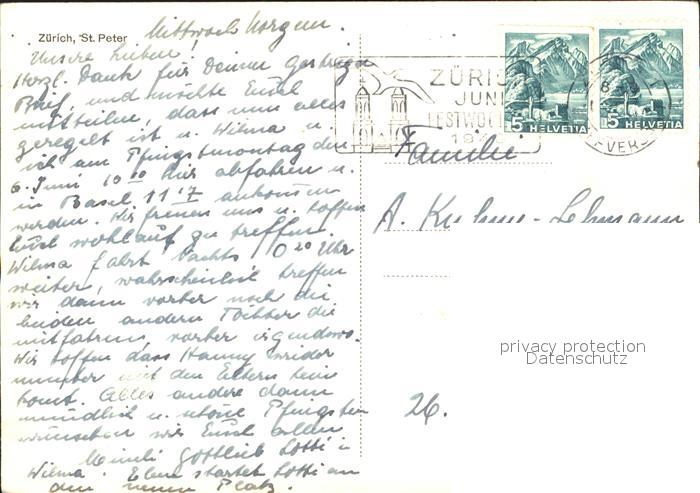 Zürich, St. Peter
Mittwoch Morgen.
Unsere Lieben!
Herzl. Dank für Deinen gestrigen
Brief, und möchte Euch
mitteilen, dass nun alles
geregelt ist u. Wilma u.
ich am Pfingstmontag den
6. Juni 10 10 hier abfahren u.
in Basel 11 17 ankommen
werden. Wir freuen uns u. hoffen
Euch wohlauf zu treffen.
Wilma fährt Nachts 0 20 Uhr
weiter, wahrscheinlich treffen
wir dann vorher noch die
beiden andern Töchter die
mitfahren, vorher irgendwo.
Wir hoffen dass Hanny wieder
munter mit den Eltern heim
kommt. Alles andere dann
mündlich u. schöne Pfingsten
wünschen wir Euch allen
Gottlieb Lotti i
Wilma. startet Lotti an
den neuen Platz.
ZÜRICH
JUNI
FESTWOCHEN
5 HELVETIA
5 HELVETIA
Familie
A. Kuhne-Lehmann
privacy protection
Datenschutz
26.